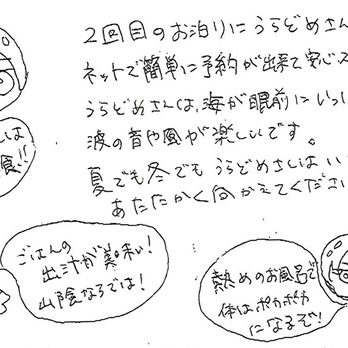 2回目のお泊りにうらどめさん
ネットで簡単に予約が出来て安心ス
うらどめさんは、海が眼前にいっ
波の音や風が楽しいです。
夏でも冬でもうらどめさんはい
あたたかく向かえてくださ
しは
食!!
ごはんの
出汁が美味い!
山陰ならでは!
熱めのお風呂で
体はポカポカ
になるぞ!